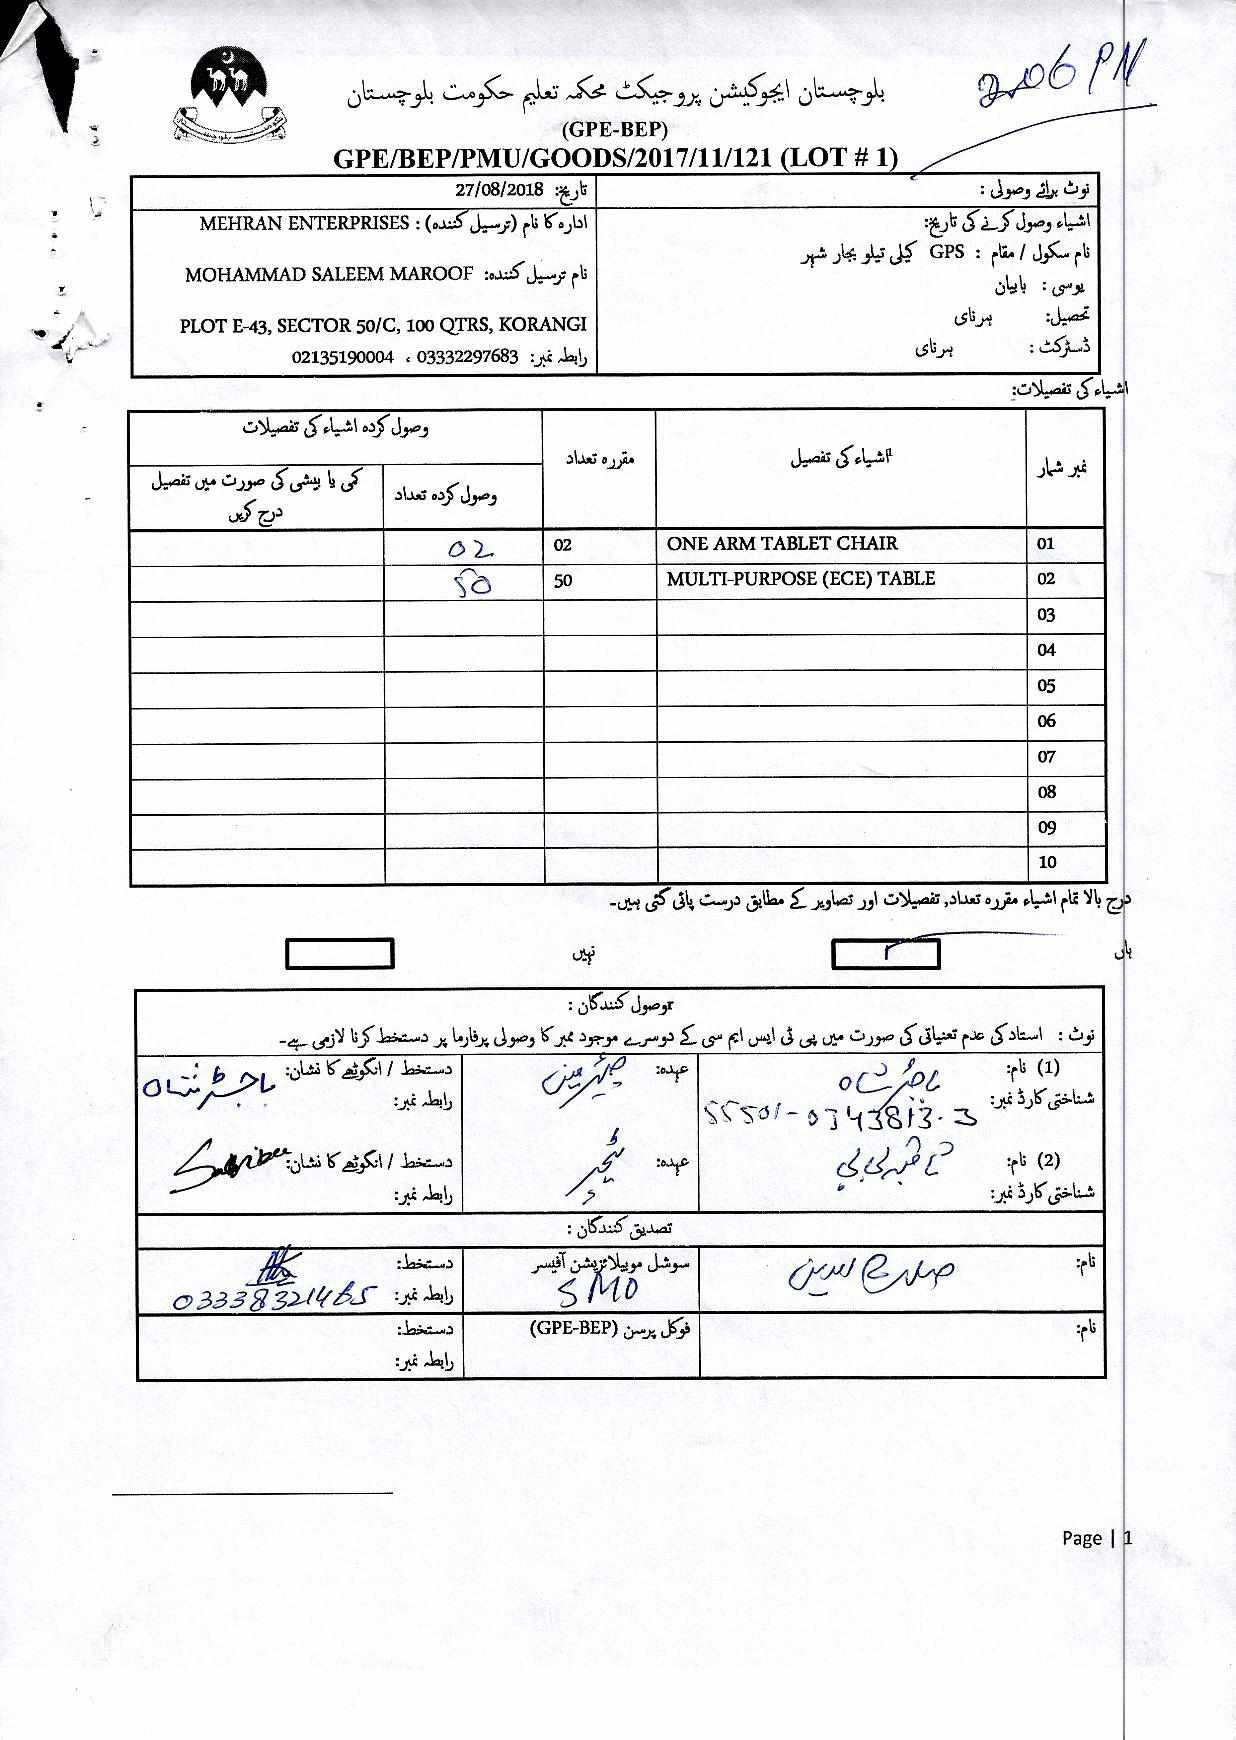 2:06 PM
بلوچستان ایجوکیشن پروجیکٹ محکمہ تعلیم حکومت بلوچستان
(GPE-BEP)
GPE/BEP/PMU/GOODS/2017/11/121 (LOT # 1)
نوٹ برائے وصولی :
تاریخ: 27/08/2018
اشیاء وصول کرنے کی تاریخ:
نام سکول / مقام : GPS کلی تیلو بجار شہر
یوسی : بابیان
تحصیل: ہرنای
ڈسٹرکٹ : ہرنای
ادارہ کا نام (ترسیل کنندہ) : MEHRAN ENTERPRISES
نام ترسیل کنندہ: MOHAMMAD SALEEM MAROOF
PLOT E-43, SECTOR 50/C, 100 QTRS, KORANGI
رابطہ نمبر: 03332297683 ، 02135190004
اشیاء کی تفصیلات:
نمبر شمار اشیاء کی تفصیل مقررہ تعداد وصول کردہ اشیاء کی تفصیلات
وصول کردہ تعداد کمی یا بیشی کی صورت میں تفصیل درج کریں
01 ONE ARM TABLET CHAIR 02 02
02 MULTI-PURPOSE (ECE) TABLE 50 50
03
04
05
06
07
08
09
10
درج بالا تمام اشیاء مقررہ تعداد, تفصیلات اور تصاویر کے مطابق درست پائی گئی ہیں۔
ہاں نہیں
وصول کنندگان :
نوٹ : استاد کی عدم تعیناتی کی صورت میں پی ٹی ایس ایم سی کے دوسرے موجود ممبر کا وصولی پرفارما پر دستخط کرنا لازمی ہے۔
(1) نام: عہدہ: چیئرمین دستخط / انگوٹھے کا نشان:
شناختی کارڈ نمبر: 55501-0343813-3 رابطہ نمبر:
(2) نام: عہدہ: ٹیچر دستخط / انگوٹھے کا نشان:
شناختی کارڈ نمبر: رابطہ نمبر:
تصدیق کنندگان :
نام: سوشل موبیلائزیشن آفیسر دستخط:
SMO رابطہ نمبر: 03338321465
نام: فوکل پرسن (GPE-BEP) دستخط:
رابطہ نمبر:
Page | 1